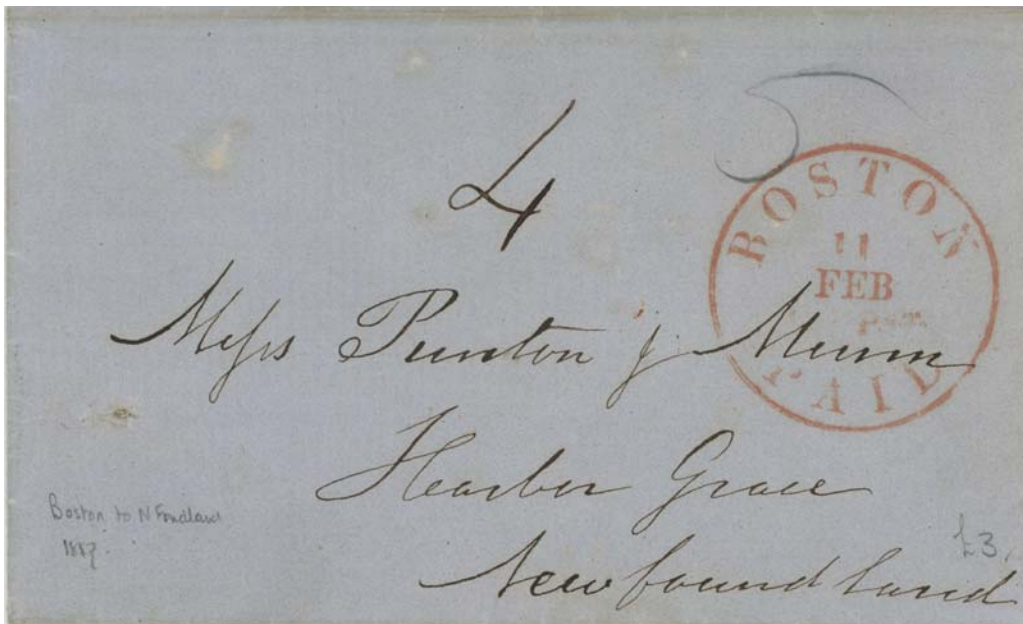 4
BOSTON
11
FEB
PAID
Mess Punton & Munn
Harbor Grace
Newfoundland
Boston to N Fondland
£3.